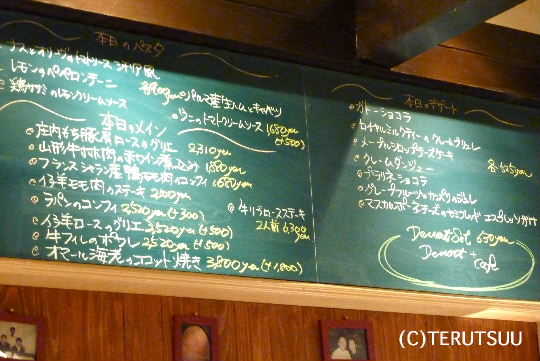 本日のパスタ
ナスとオリーヴのトマトソース
レモンのペペロンチーニ
鶏ササミのレモンクリームソース
パルマ産生ハムとキャベツ
ウニのトマトクリームソース 1680yen (+500)
本日のメイン
庄内もち豚肩ロースのグリエ 2310yen
山形牛すね肉の赤ワイン煮込み
フランス シャラン産鴨モモ肉のコンフィ 1680yen
仔羊モモ肉のステーキ 2500yen
ラパンのコンフィ 2520yen (+300)
仔羊ロースのグリエ 2520yen (+500)
牛フィレのポワレ 2520yen (+500)
オマール海老のココット焼き 3,800yen (+1,800)
牛リブロースステーキ
2人前 6,300yen
本日のデザート
ガトーショコラ
ロイヤルミルクティーのクレームブリュレ
メープルシロップチーズケーキ
クレームダンジュ
各525yen
テリーヌショコラ
グレープフルーツとカンパリのジュレ
マスカルポーネチーズのセミフレッド エスプレッソ
Dessert Set 630yen
Dessert +
Cafe
(C)TERUTSUU